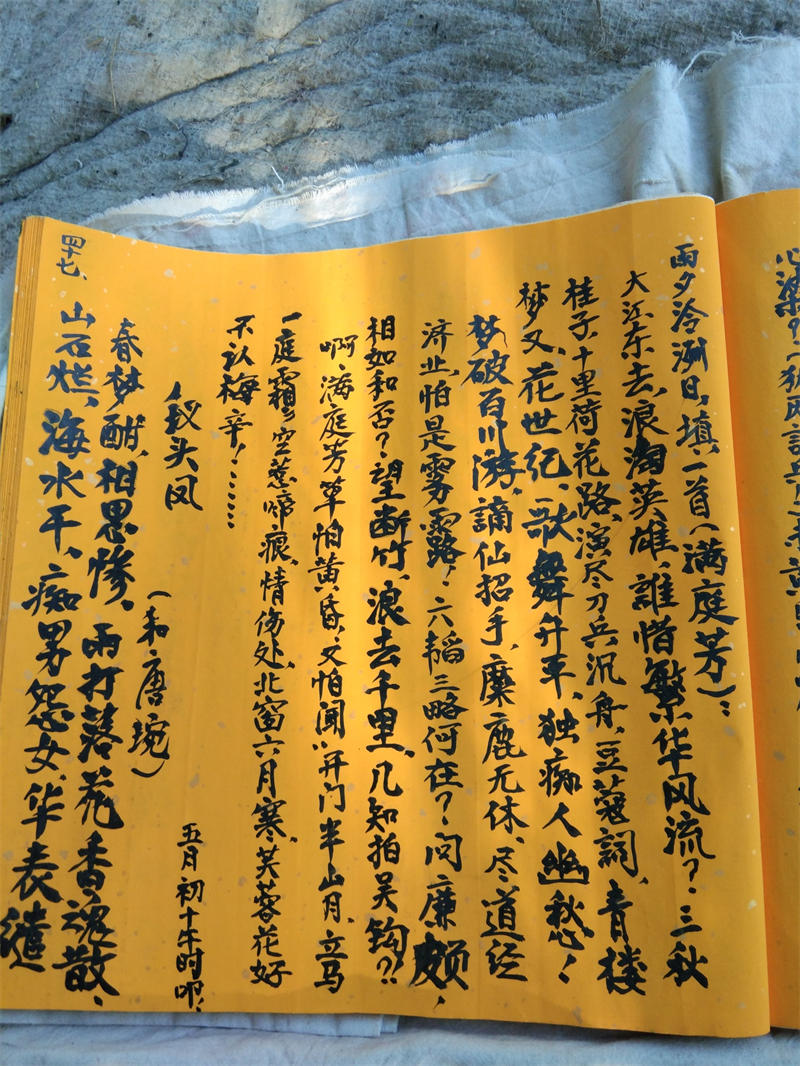 心染？（
雨夕冷渊日，填一首（满庭芳）：
大江东去，浪淘英雄，誰惜繁华风流？三秋
桂子，十里荷花路，演尽刀兵沉舟，豆蔻詞，青楼
梦又，花世纪，歌舞升平，独痴人幽愁！
梦破百川游，謫仙招手，麋鹿无休，尽道经
济业，怕是雾露！六韬三略何在？问廉颇，
相如和否？望断竹，浪去千里，几知拍吴钩？！
啊，满庭芳草怕黄昏，又怕闻，开门半山月，立马
一庭霜，空惹啼痕，情伤处，北窗六月寒，芙蓉花好
不认梅辛！……
五月初十午时叩，
钗头凤
（和唐琬）
春梦酣，相思惨，雨打落花香魂散，
山石烂，海水干，痴男怨女，华表缱
四十七、